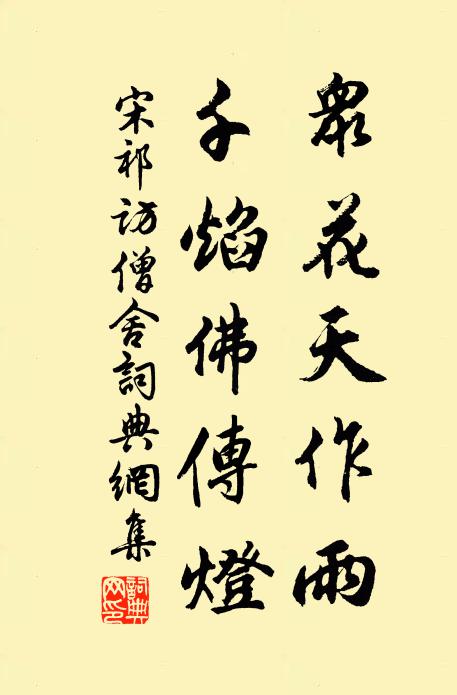 眾花天作雨
千焰佛傳燈
宋祁訪僧舍詞典網集
詞典網印